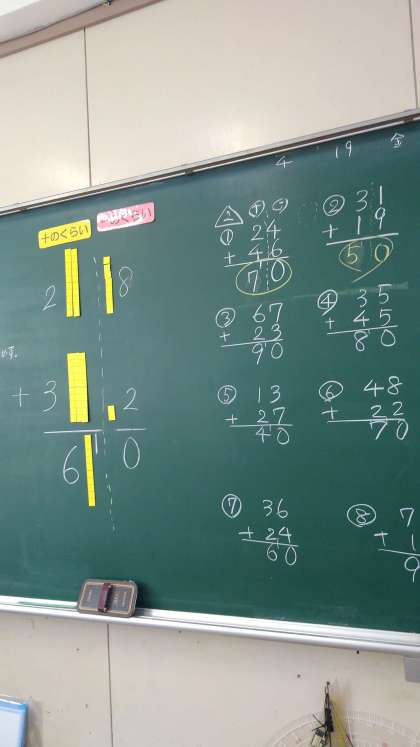 4 19 金
十のくらい 一のくらい
2 8
+ 3 2
6 0
十 一
① 24
+ 46
70
② 31
+ 19
50
③ 67
+ 23
90
④ 35
+ 45
80
⑤ 13
+ 27
40
⑥ 48
+ 22
70
⑦ 36
+ 24
60
⑧ 7
+ 1
9